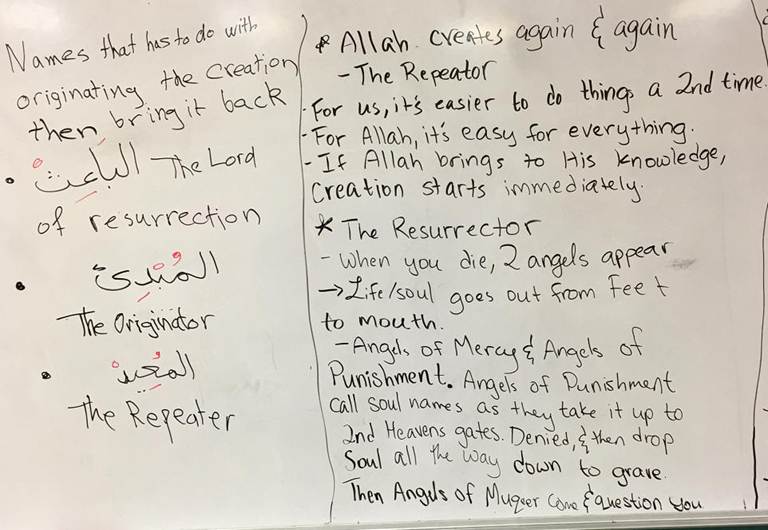 Names that has to do with
originating the Creation
then bring it back
• الباعث The Lord
of resurrection
• المُبْدِئ
The Originator
• المُعِيدُ
The Repeater
* Allah creates again & again
- The Repeator
- For us, it's easier to do things a 2nd time.
- For Allah, it's easy for everything.
- If Allah brings to His knowledge,
Creation starts immediately.
* The Resurrector
- When you die, 2 angels appear
→ Life/soul goes out from feet
to mouth.
- Angels of Mercy & Angels of
Punishment. Angels of Punishment
call soul names as they take it up to
2nd Heavens gates. Denied, & then drop
Soul all the way down to grave.
Then Angels of Muqeer come & question you